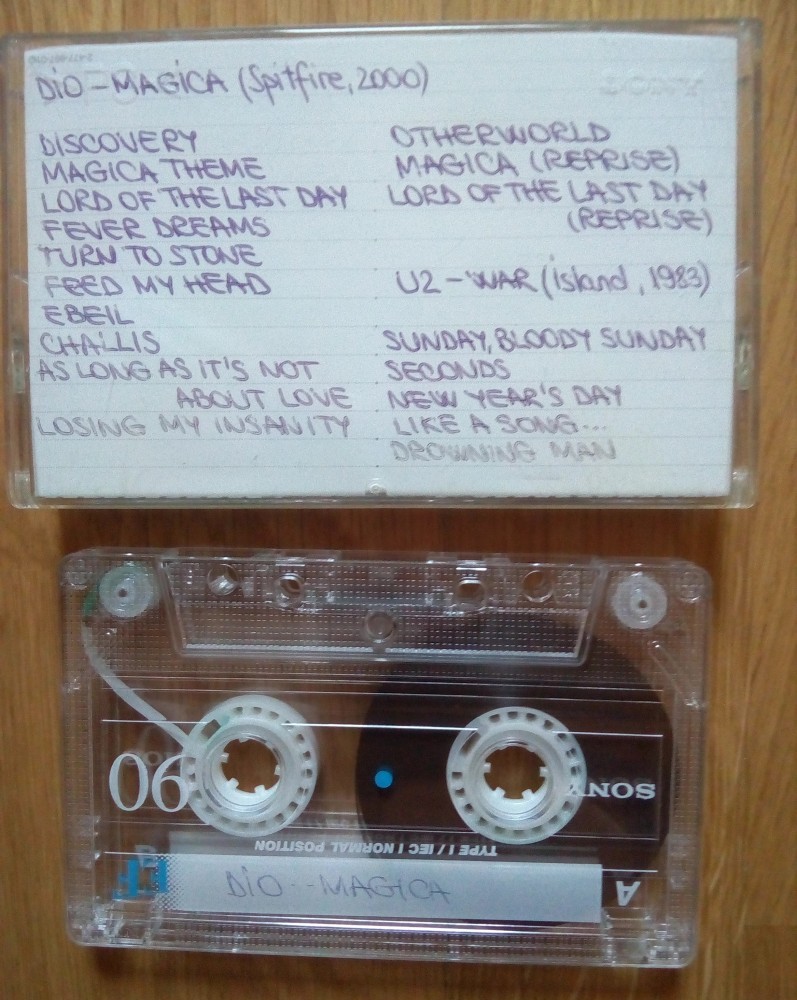 DIO - MAGICA (Spitfire, 2000)
DISCOVERY
MAGICA THEME
LORD OF THE LAST DAY
FEVER DREAMS
TURN TO STONE
FEED MY HEAD
EBEIL
CHALLIS
AS LONG AS IT'S NOT
ABOUT LOVE
LOSING MY INSANITY
OTHERWORLD
MAGICA (REPRISE)
LORD OF THE LAST DAY
(REPRISE)
U2 - WAR (island, 1983)
SUNDAY, BLOODY SUNDAY
SECONDS
NEW YEAR'S DAY
LIKE A SONG...
DROWNING MAN
SONY
90
SONY
TYPE I / IEC I NORMAL POSITION
EF
DIO - MAGICA
A